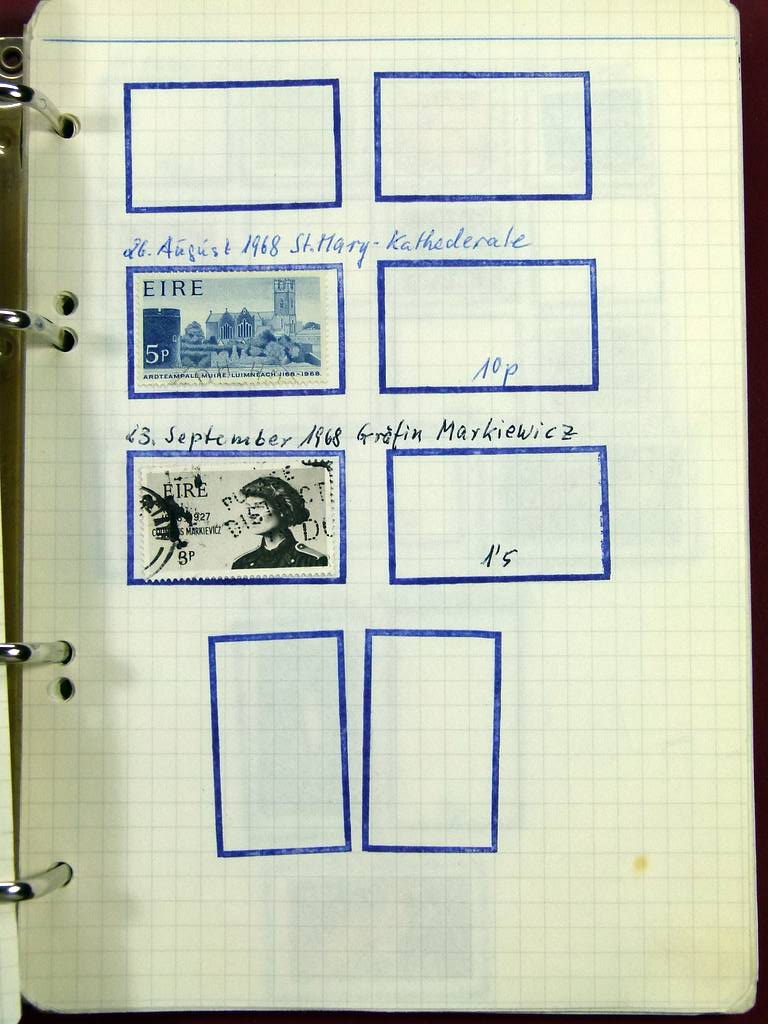 26. August 1968 St. Mary-Kathederale
EIRE
5p
ARDTEAMPALL MUIRE, LUIMNEACH 1168-1968
10p
23. September 1968 Gräfin Markiewicz
EIRE
1927
MARKIEVICZ
3P
1'5